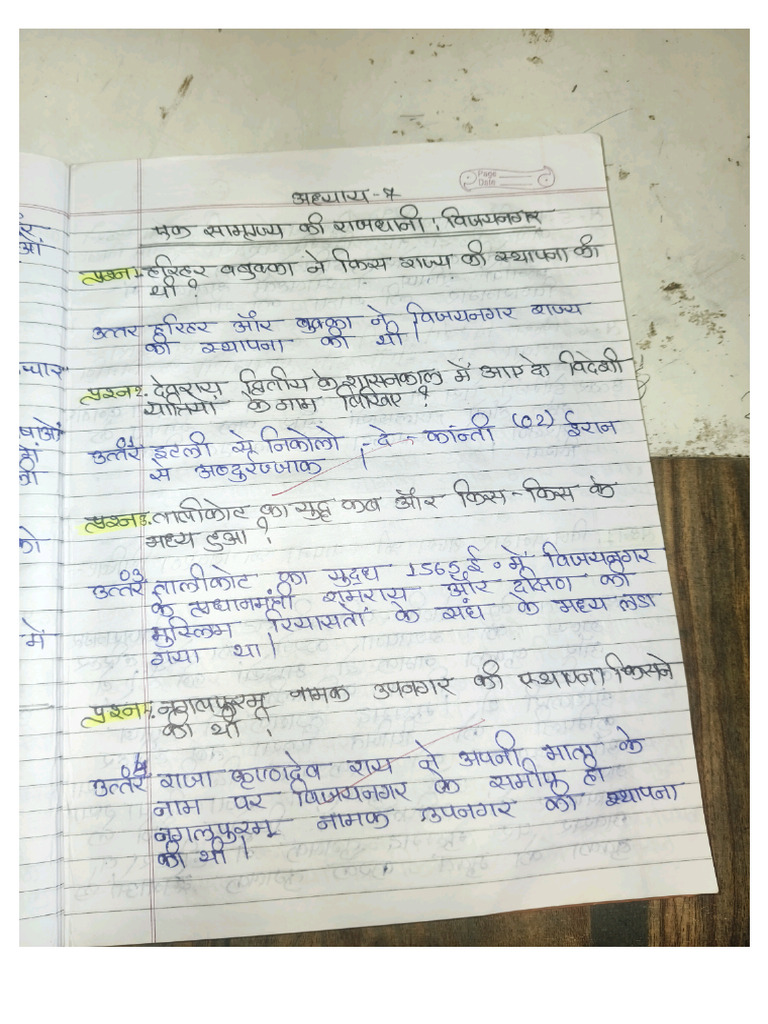 Page
Date
अध्याय-7
एक साम्राज्य की राजधानी : विजयनगर
प्रश्न1. हरिहर व बुक्का ने किस राज्य की स्थापना की
थी ?
उत्तर हरिहर और बुक्का ने विजयनगर राज्य
की स्थापना की थी।
प्रश्न2. देवराय द्वितीय के शासनकाल में आए दो विदेशी
यात्रियों के नाम लिखिए ?
उत्तर 01 इटली से निकोलो -दे- कांन्ती (02) ईरान
से अब्दुरज्जाक ।
प्रश्न3. तालीकोट का युद्ध कब और किस-किस के
मध्य हुआ ?
उत्तर 03 तालीकोट का युद्ध 1565 ई॰ में विजयनगर
के प्रधानमंत्री रामराय और दक्षिण की
मुस्लिम रियासतों के संघ के मध्य लडा
गया था।
प्रश्न4. नगलपुरम् नामक उपनगर की स्थापना किसने
की थी ?
उत्तर 04 राजा कृष्णदेव राय ने अपनी मातृ के
नाम पर विजयनगर के समीप ही
नगलपुरम् नामक उपनगर की स्थापना
की थी।
ओं
चार
षाओं
में
को
में